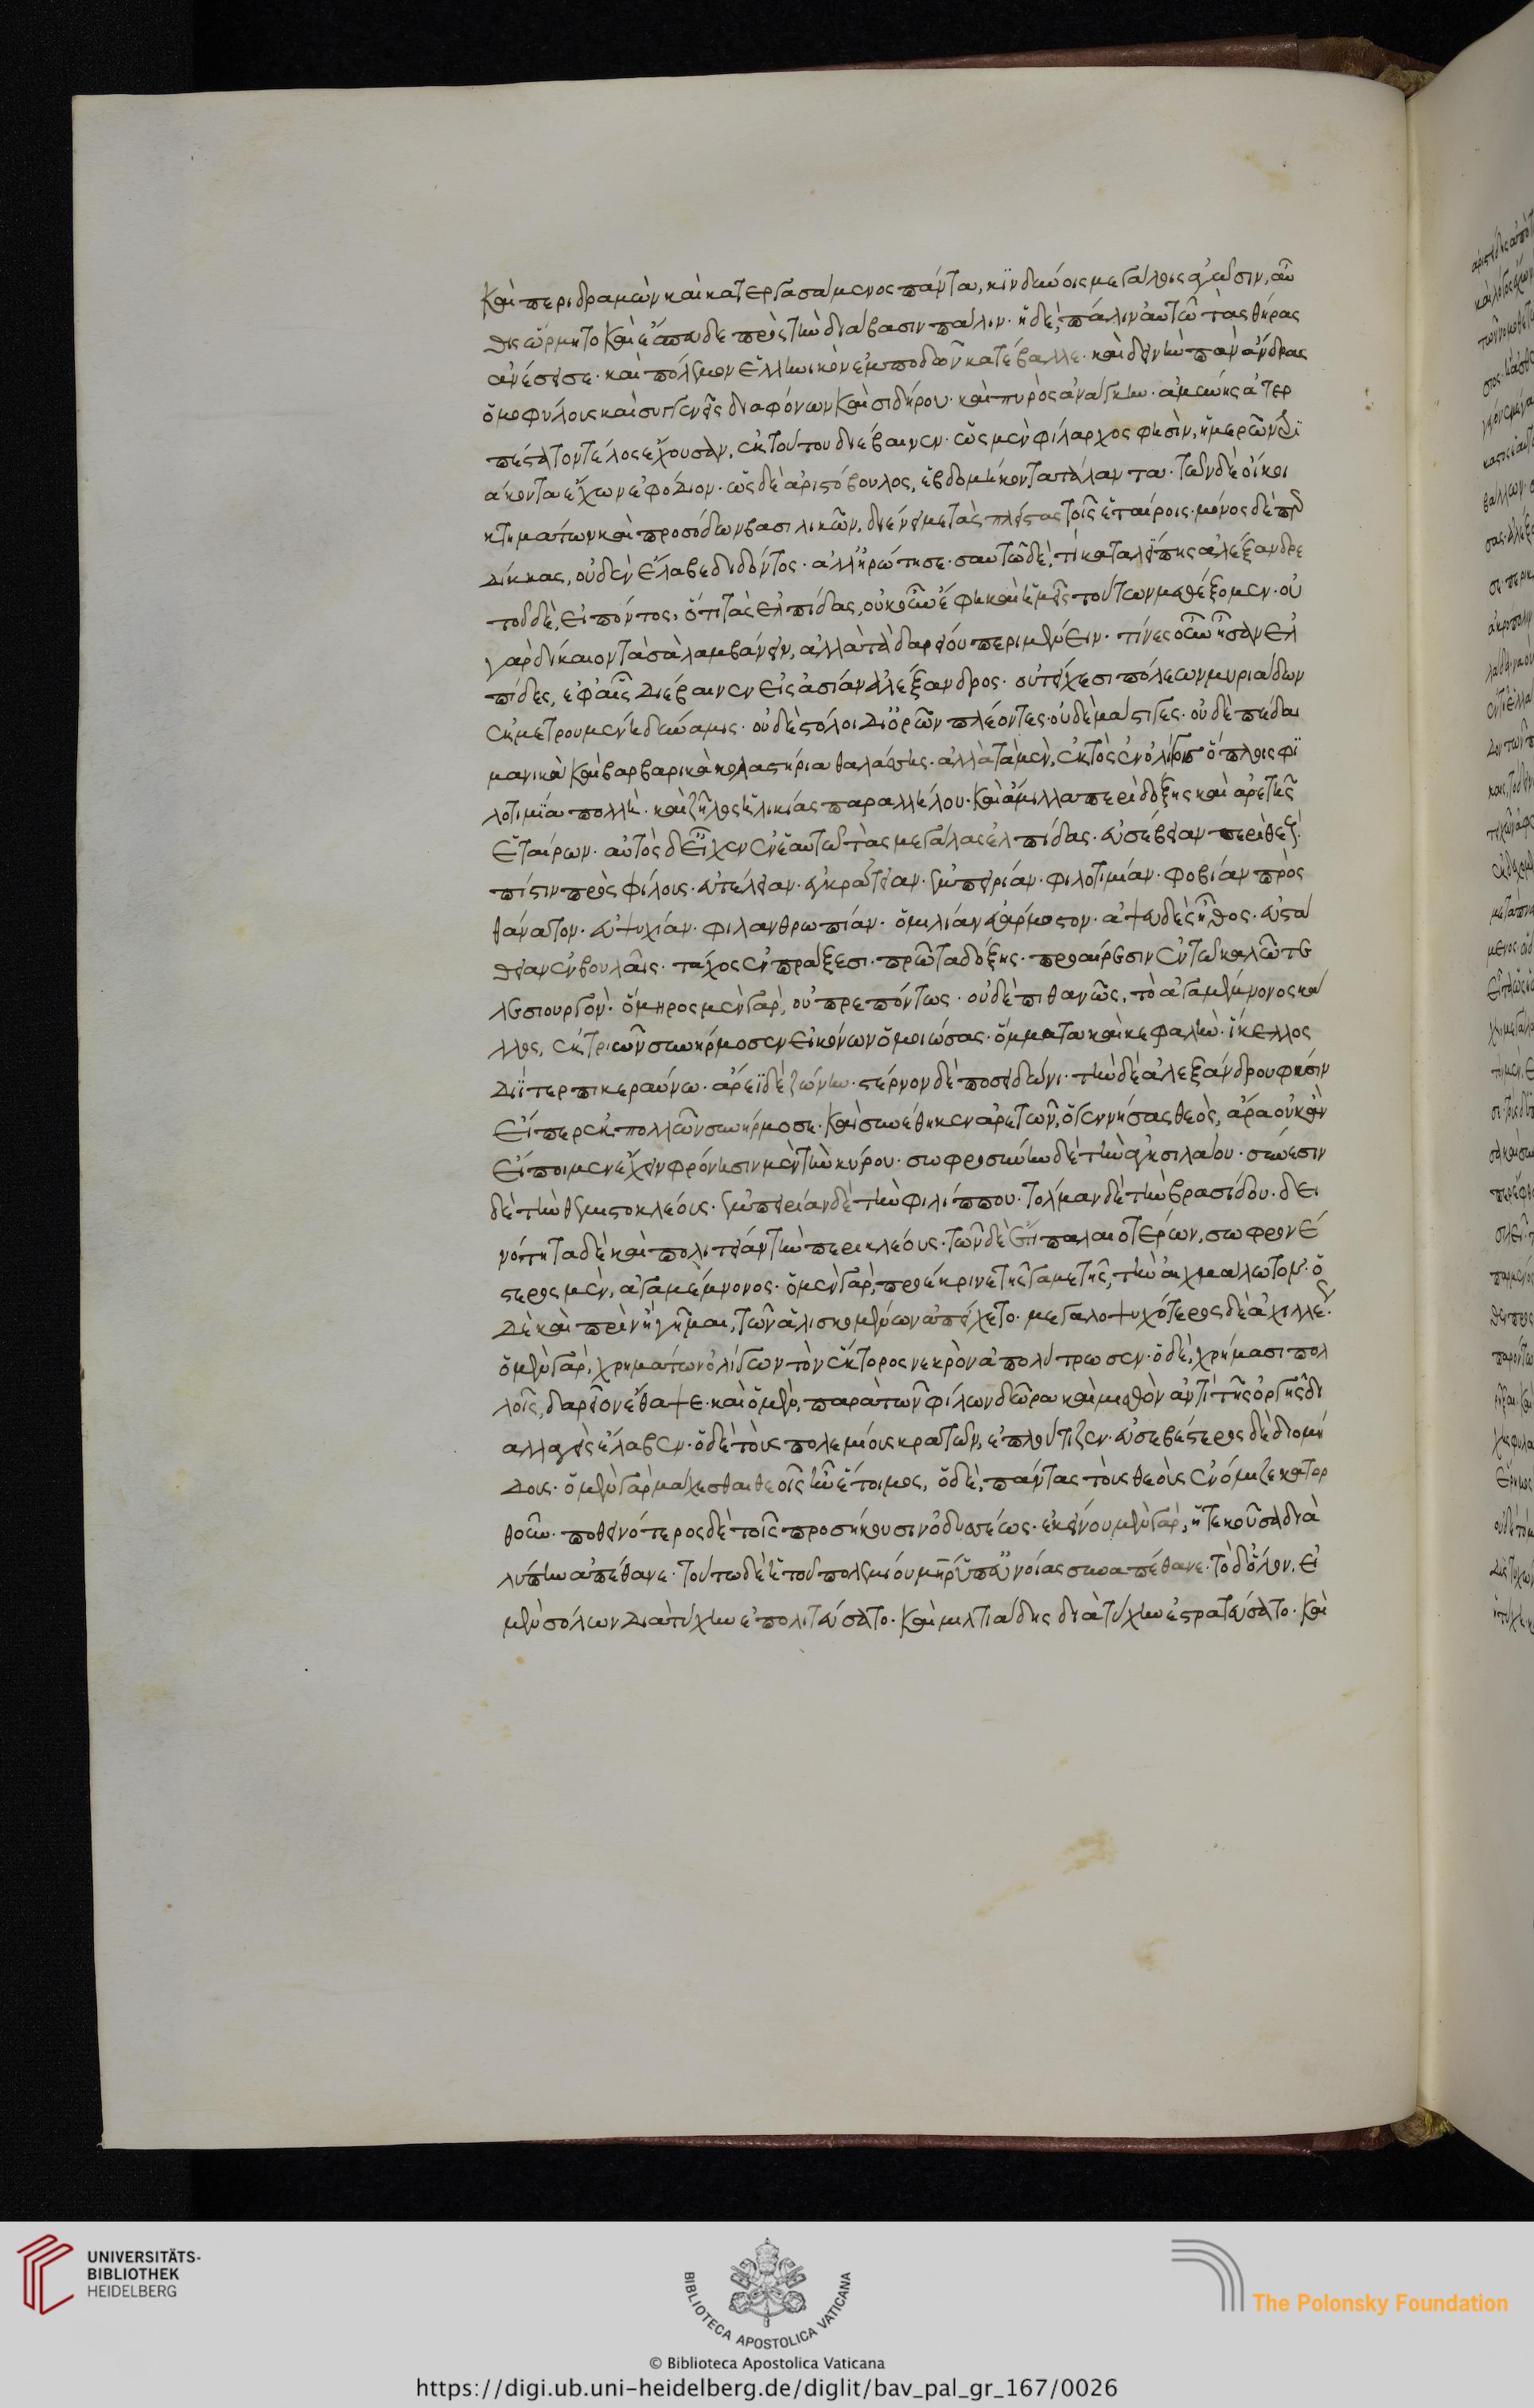 καὶ περιδραμὼν καὶ κατεργασάμενος πάντα, κινδύνοις μεγάλοις αὖσιν, αὖ
θις ὥρμητο καὶ ἔσπευδε πρὸς τὴν διάβασιν πάλιν. ἡ δὲ, πάλιν αὐτῶ τὰς θήρας
ἀνέσεισε. καὶ πόλεμον ἑλληνικὸν ἐμποδὼν κατέβαλλε. καὶ δεινὴν πρὸς ἄνδρας
ὁμοφύλους καὶ συγγενεῖς διὰ φόνων καὶ σιδήρου. καὶ πυρὸς ἀνάγκην. ἀμύνης ἀτερ
πέστατον τέλος ἔχουσαν, ἐκ τούτου διέβαινεν. ὡς μὲν φίλαρχος φησὶν, ἡμερῶν τρι
άκοντα ἔχων ἐφόδιον. ὡς δὲ ἀριστόβουλος, ἑβδομήκοντα τάλαντα. τῶν δὲ οἴκοι
κτημάτων καὶ προσόδων βασιλικῶν, διένειμε τὰς πλείστας τοῖς ἑταίροις. μόνος δὲ περ
δίκκας, οὐδὲν ἔλαβε διδόντος. ἀλλ' ἠρώτησε. σαυτῶ δὲ, τί καταλείπεις ἀλέξανδρε
τοῦ δὲ, εἰπόντος, ὅτι τὰς ἐλπίδας, οὐκοῦν ἔφη καὶ ἡμεῖς τούτων μεθέξομεν. οὐ
γὰρ δίκαιον τὰ σὰ λαμβάνειν, ἀλλὰ τὰ δαρείου περιμένειν. τίνες οὖν ἦσαν ἐλ
πίδες, ἐφ' αἷς διέβαινεν εἰς ἀσίαν ἀλέξανδρος. οὐ τείχεσι πόλεων μυριάδων
ἐκμετρουμένη δύναμις. οὐδὲ στόλοι δι' ὀρῶν πλέοντες. οὐδὲ μάστιγες. οὐδὲ πέδαι
μανικὰ καὶ βαρβαρικὰ κολαστήρια θαλάσσης. ἀλλὰ τὰ μὲν, ἐκτὸς ἐν ὀλίγοις ὅπλοις φι
λοτιμία πολλὴ. καὶ ζῆλος ἡλικίας παραλλήλου. καὶ ἅμιλλα περὶ δόξης καὶ ἀρετῆς
ἑταίρων. αὐτὸς δ' εἶχεν ἐν ἑαυτῶ τὰς μεγάλας ἐλπίδας. εὐσέβειαν περὶ θεούς.
πίστιν πρὸς φίλους. εὐτέλειαν. ἐγκράτειαν. ἐμπειρίαν. φιλοτιμίαν. φοβίαν πρὸς
θάνατον. εὐψυχίαν. φιλανθρωπίαν. ὁμιλίαν εὐάρμοστον. ἀψευδὲς ἦθος. εὐστά
θειαν ἐν βουλαῖς. τάχος ἐν πράξεσι. πρῶτα δόξης. προαίρεσιν ἐν τῶ καλῶ τε
λεσιουργὸν. ὅμηρος μὲν γὰρ, οὐ πρεπόντως. οὐδὲ πιθανῶς, τὸ ἀγαμέμνονος κά
λλος, ἐκ τριῶν συνήρμοσεν εἰκόνων ὁμοιώσας. ὄμματα καὶ κεφαλὴν. ἴκελλος
διῒ τερπικεραύνω. ἄρεϊ δὲ ζώνην. στέρνον δὲ ποσειδῶνι. τὴν δὲ ἀλεξάνδρου φησὶν
εἴπερ ἐκ πολλῶν συνήρμοσε. καὶ συνέθηκεν ἀρετῶν, ὁ γεννήσας θεὸς, ἆρα οὐκ ἂν
εἴποιμεν ἔχειν φρόνησιν μὲν τὴν κύρου. σωφροσύνην δὲ τὴν ἀγησιλάου. σύνεσιν
δὲ τὴν θεμιστοκλέους. ἐμπειρίαν δὲ τὴν φιλίππου. τόλμαν δὲ τὴν βρασίδου. δει
νότητα δὲ καὶ πολιτείαν τὴν περικλέους. τῶν δὲ ἔτι παλαιοτέρων, σωφρονέ
στερος μὲν, ἀγαμέμνονος. ὁ μὲν γὰρ, προέκρινε τῆς γαμετῆς, τὴν αἰχμάλωτον. ὁ
δὲ καὶ πρὶν ἢ γῆμαι, τῶν ἁλισκομένων ἀπείχετο. μεγαλοψυχότερος δὲ ἀχιλλέως.
ὁ μὲν γὰρ, χρημάτων ὀλίγων τὸν ἕκτορος νεκρὸν ἀπολύτρωσεν. ὁ δὲ, χρήμασι πολ
λοῖς, δαρεῖον ἔθαψε. καὶ ὁ μὲν, παρὰ τῶν φίλων δῶρα καὶ μισθὸν ἀντὶ τῆς ὀργῆς δι
αλλαγεὶς ἔλαβεν. ὁ δὲ τοὺς πολεμίους κρατῶν, ἐπλούτιζεν. εὐσεβέστερος δὲ διομή
δους. ὁ μὲν γὰρ μάχεσθαι θεοῖς ἦν ἕτοιμος, ὁ δὲ, πάντας τοὺς θεοὺς ἐνόμιζε κατορ
θοῦν. ποθεινότερος δὲ τοῖς προσήκουσιν ὀδυσσέως. ἐκείνου μὲν γὰρ, ἡ τεκοῦσα διὰ
λύπην ἀπέθανε. τούτω δὲ ἡ τοῦ πολεμίου μηρ ὑπ' εὐνοίας συναπέθανε. τὸ δ' ὅλον, εἰ
μὲν σόλων διὰ τύχην ἐπολιτεύσατο. καὶ μιλτιάδης διὰ τύχην ἐστρατεύσατο. καὶ
UNIVERSITÄTS-
BIBLIOTHEK
HEIDELBERG
BIBLIOTECA APOSTOLICA VATICANA
The Polonsky Foundation
© Biblioteca Apostolica Vaticana
https://digi.ub.uni-heidelberg.de/diglit/bav_pal_gr_167/0026